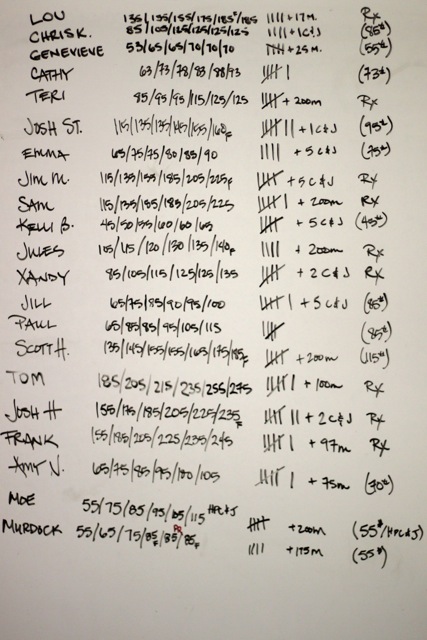 LOU 135/135/155/175/185F/185 |||| + 17 M. Rx
CHRIS K. 85/105/125/125/125/125 |||| + 1 C&J (85#)
GENEVIEVE 53/65/65/70/70/70 + 25 M. (55#)
CATHY 63/73/78/83/88/93 |||| | (73#)
TERI 85/95/95/115/125/125 |||| + 200m Rx
JOSH ST. 115/135/135/145/155/160F |||| || + 1 C&J (95#)
EMMA 65/75/75/80/85/90 |||| + 5 C&J (75#)
JIM M. 115/135/155/185/205/225F |||| + 5 C&J Rx
SAM 115/135/185/185/205/225 |||| | + 200m Rx
KELLI B. 45/50/55/60/60/65 |||| + 5 C&J (45#)
JULES 105/115/120/130/135/140F |||| + 200m Rx
XANDY 85/105/115/125/125/135 |||| + 2 C&J Rx
JILL 65/75/85/90/95/100 |||| | + 5 C&J (85#)
PAUL 65/85/85/95/105/115 |||| (85#)
SCOTT H. 135/145/155/155/165/175/185F |||| + 200m (115#)
TOM 185/205/215/235/255/275 |||| | + 100m Rx
JOSH H 155/175/185/205/225/235F |||| || + 2 C&J Rx
FRANK 155/185/205/225/235/245 |||| | + 97m Rx
AMY V. 65/75/85/95/100/105 |||| | + 75m (70#)
MOE 55/75/85/95/105/115 HPC&J |||| + 200m (55#/HPC&J)
MURDOCK 55/65/75/85F/85PR/85F |||| + 175 M (55#)